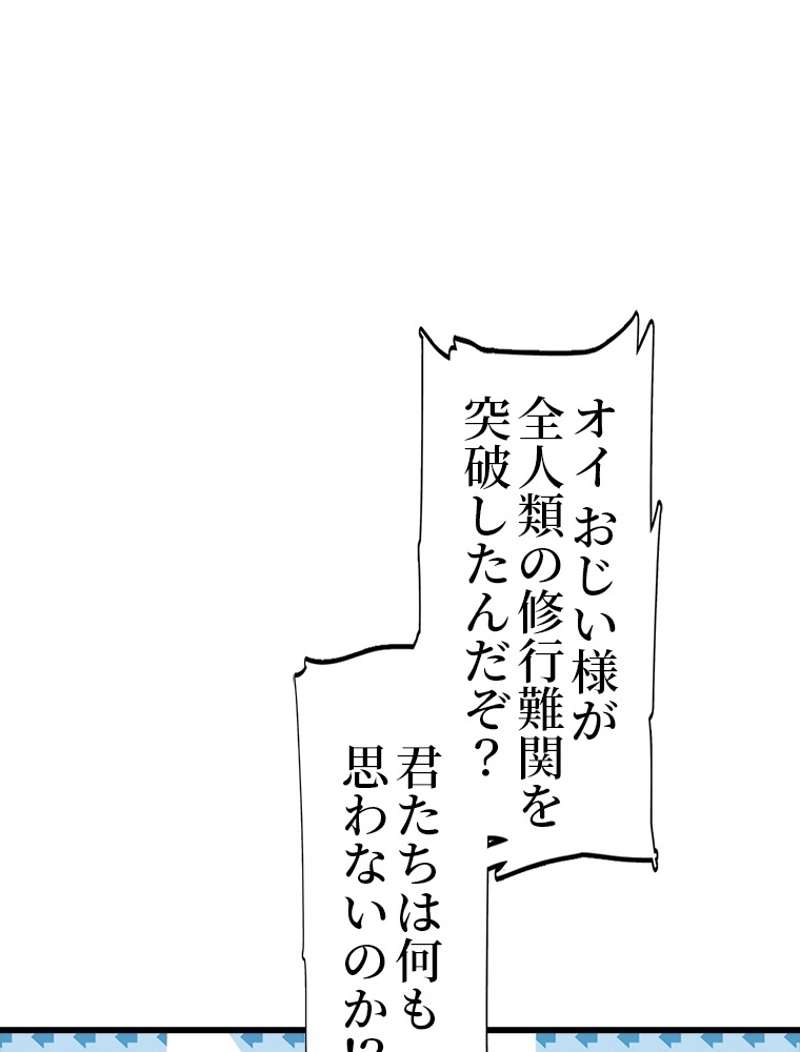 オイ おじい様が
全人類の修行難関を
突破したんだぞ？
君たちは何も
思わないのか!?